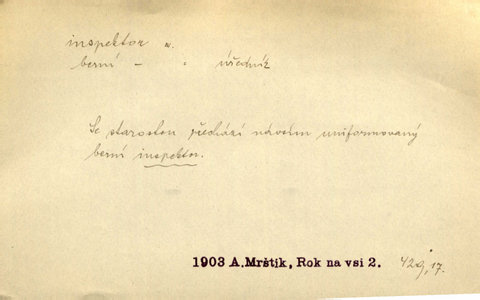 inspektor m.
berní – „ úředník
Se starostou přechází návsím uniformovaný
berní inspektor.
1903 A.Mrštík, Rok na vsi 2. 429,17.